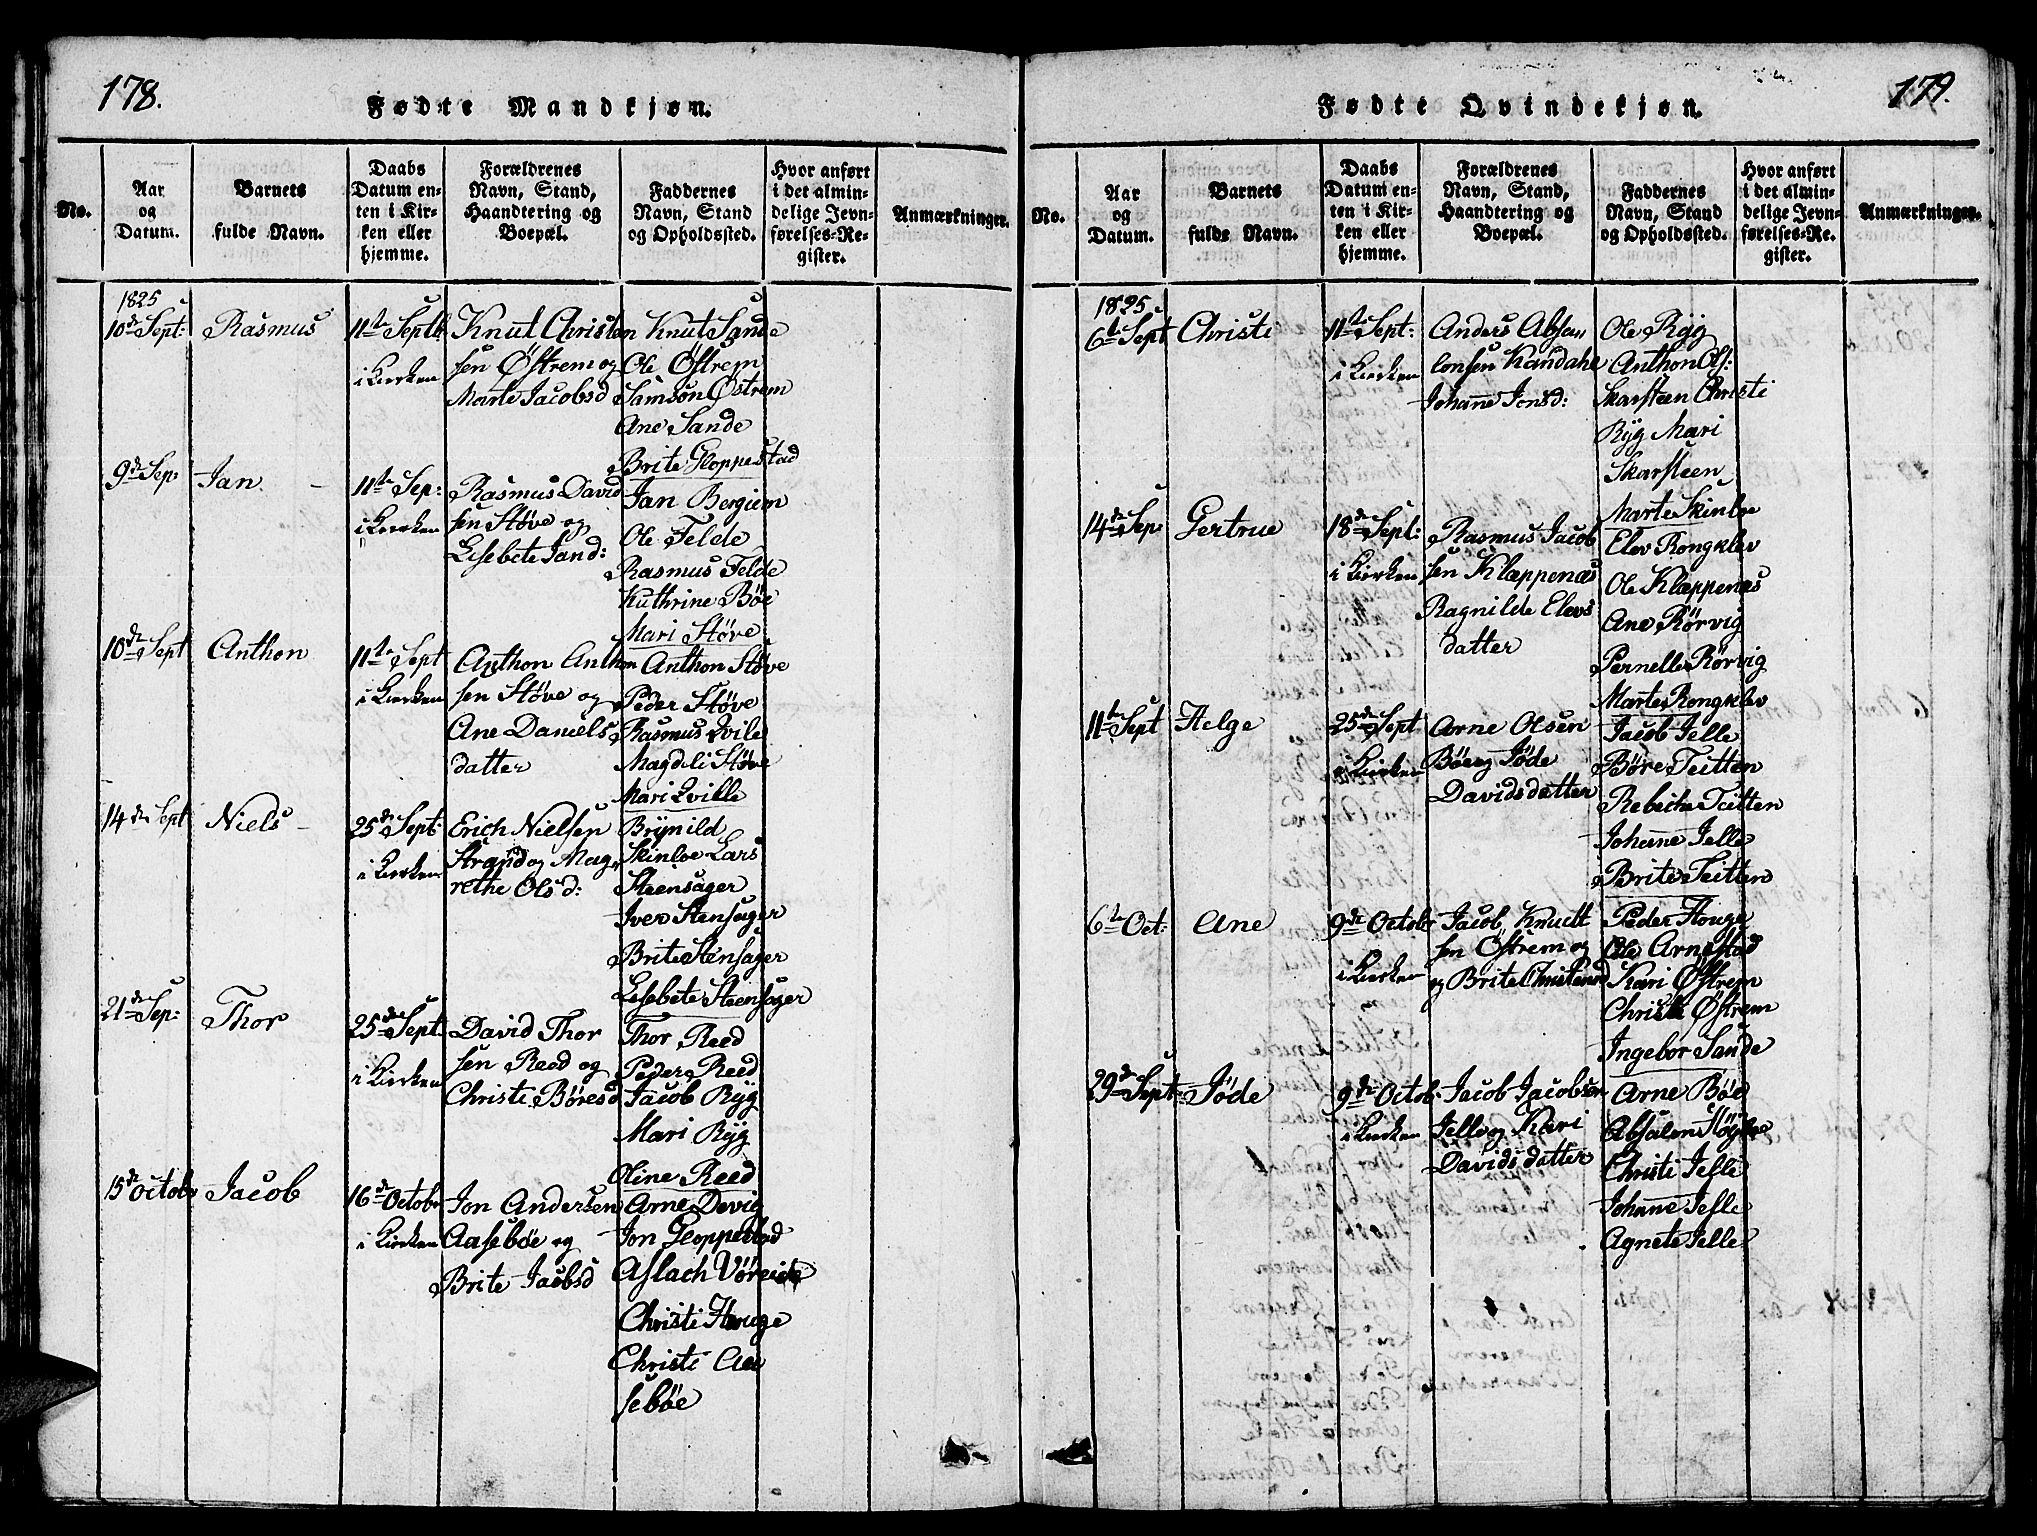 178.
Fødte Mandkjøn.
No.
Aar
og
Datum.
Barnets
fulde Navn.
Daabs
Datum en-
ten i Kir-
ken eller
hjemme.
Forældrenes
Navn, Stand,
Haandtering og
Boepæl.
Faddernes
Navn, Stand
og Opholdssted.
Hvor anført
i det almin-
delige Jevn-
førelses-Re-
gister.
Anmærkninger.
1825
10de Sept: Rasmus
11te Septb.
i Kierken
Knut Christen
sen Östrem og
Marte Jacobsd
Knut Sande
Ole Östrem
Samson Östrem
Ane Sande
Brite Gloppestad
9de Sep: Jan.
11te Sep:
i Kierken
Rasmus David
sen Støve og
Lisebete Jand:
Jan Bergiem
Ole Felde
Rasmus Felde
Kuthrine Bøe
Mari Støve
10de Sept Anthon
11te Sept
i Kierken
Anthon Anthon
sen Støve og
Ane Daniels
datter
Anthon Støve
Peder Støve
Rasmus Qvile
Magdeli Støve
Mari Qville
14de Sept Niels
25de Sept:
i Kierken
Erich Nielsen
Strand og Mag
rethe Olsd:
Brÿnild
Skinloe Lars
Steensager
Iver Stensager
Brite Stensager
Lisebete Steensager
21de Sep: Thor
25de Sept.
i Kierken
David Thor
sen Reed og
Christi Børesd
Thor Reed
Peder Reed
Jacob Rÿg
Mari Rÿg
Oline Reed
15de Octobr Jacob
16de Octobr
i Kierken
Jon Andersen
Aasebøe og
Brite Jacobsd
Arne Devig
Jon Gloppestad
Aslach Vöreide
Christi Houge
Christi Aa
sebøe
179.
Fødte Qvindekjøn.
No.
Aar
og
Datum.
Barnets
fulde Navn.
Daabs
Datum en-
ten i Kir-
ken eller
hjemme.
Forældrenes
Navn, Stand,
Haandtering og
Boepæl.
Faddernes
Navn, Stand
og Opholdssted.
Hvor anført
i det almin-
delige Jevn-
førelses-Re-
gister.
Anmærkninger.
1825
6te Sept Christi
11te Sept:
i Kierken
Anders Absa
lonsen Kandahl
Johanne Jonsd:
Ole Rÿg
Anthon Ols:
Skarsteen Christi
Rÿg Mari
Skarsteen
Marte Skinloe
14de Sep: Gertrue
18de Sept:
i Kierken
Rasmus Jacob
sen Klæppenæs
Ragnilde Elevs
datter
Elev Rongklev
Ole Klæppenæs
Ane Rörvig
Pernelle Rörvig
Marte Rongklev
11te Sept Helge
25de Sept
i Kierken
Arne Olsen
Bøe og Jöde
Davidsdatter
Jacob Jelle
Børe Teitten
Rebecha Teitten
Johanne Jelle
Brite Teitten
6te Oct: Ane
9de Octobr
i Kierken
Jacob Knudt
sen Östrem og
og Brite Christensd
Peder Houge
Ole Arnestad
Kari Östrem
Christi Östrem
Ingebor Sande
29de Sept: Jöde
9de Octob.
i Kierken
Jacob Jacobsen
Jelle og Kari
Davidsdatter
Arne Bøe
Absalon Høÿloe
Christi Jelle
Johanne Jelle
Agnete Jelle